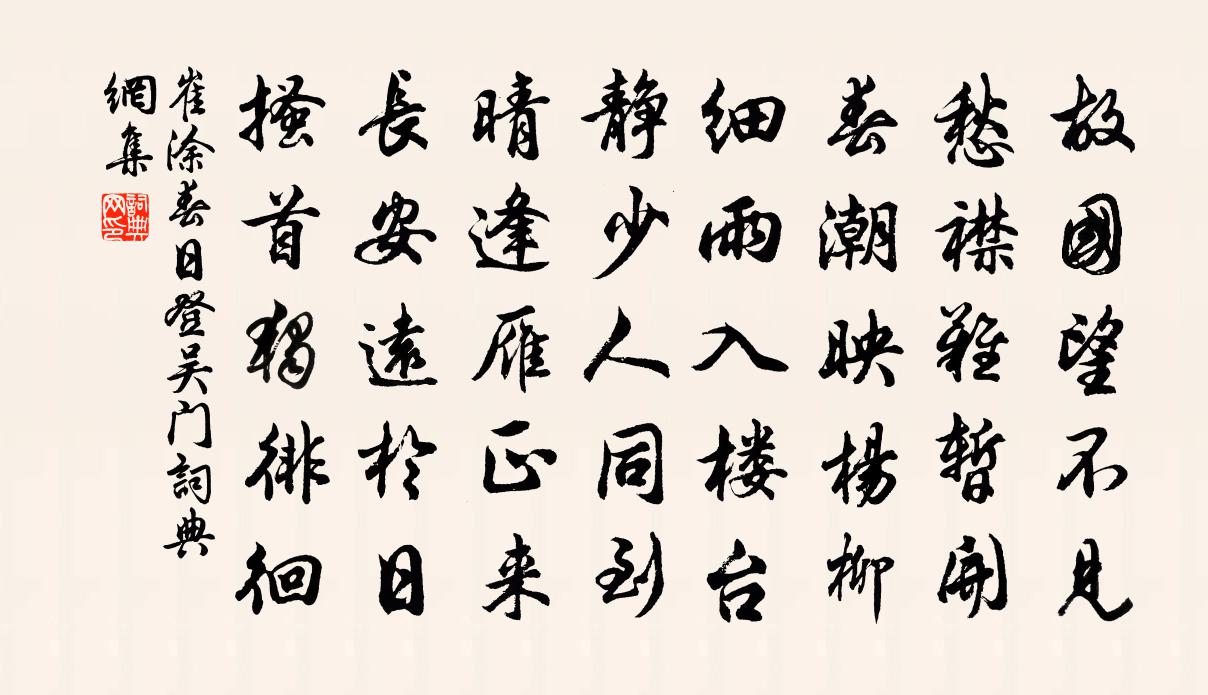 故國望不見
愁襟難暫開
春潮映楊柳
細雨入楼台
静少人同到
晴逢雁正来
長安遠於日
搔首獨徘徊
崔涂春日登吴门詞典
網集
詞典
网印